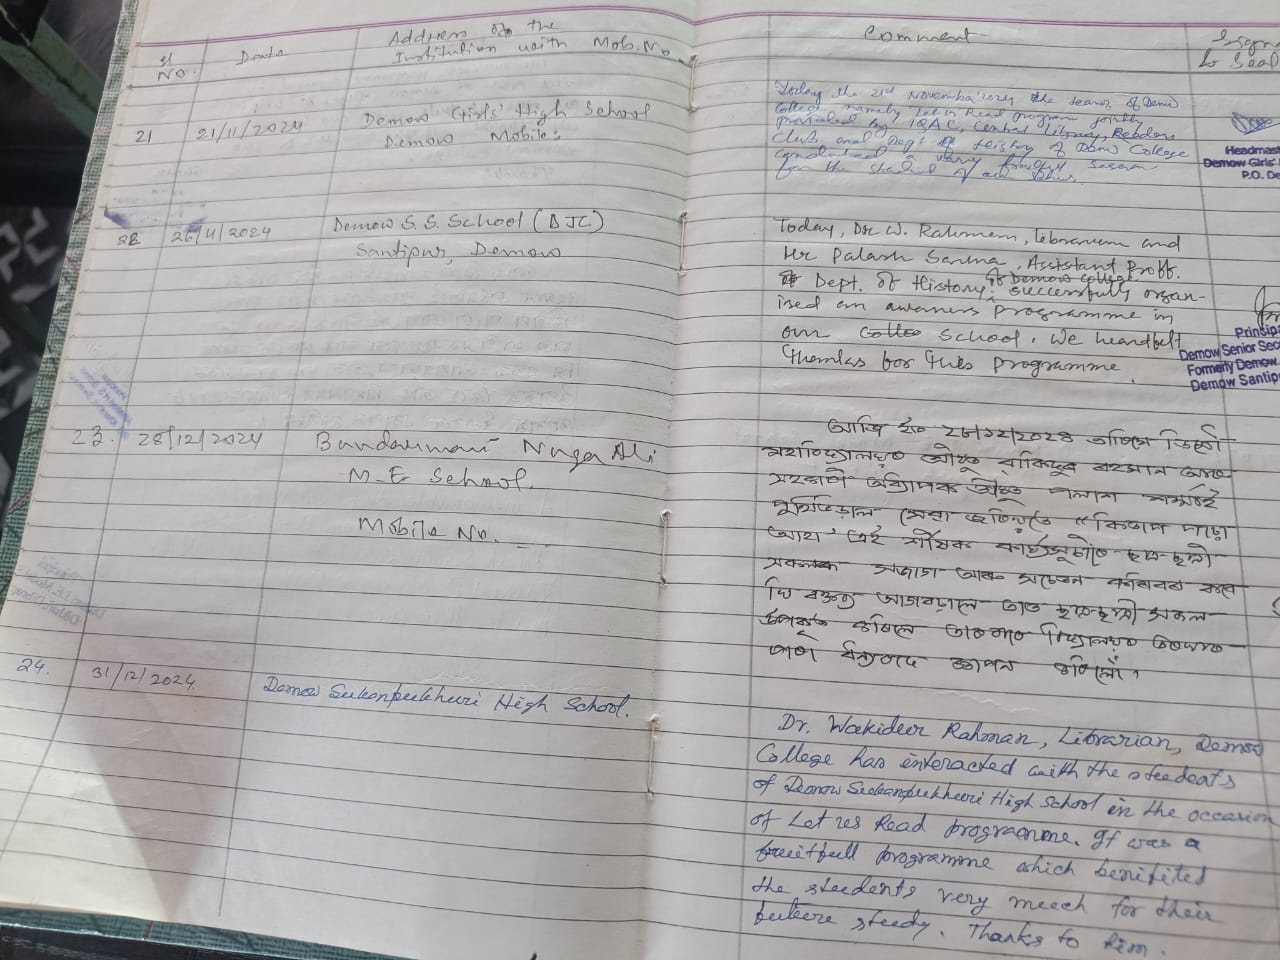 Sl No.
Date
Address of the
Institution with Mob. No.
Comment
21
21/11/2024
Demow Girls' High School
Demow Mobile:
Today the 21st November'2024 the team of Demow
College namely Let us Read program jointly
provided by IQAC, Central Library, Readers
Club and Dept of History of Demow College
conducted a very fruitful session
for the student of our
Headmast
Demow Girls'
P.O. De
22
26/11/2024
Demow S.S. School (DJC)
Santipur, Demow
Today, Dr. W. Rahman, Librarian and
Mr Palash Sarma, Assistant Proff.
Dept. of History, of Demow College successfully organ-
ised an awarness programme in
our School. We heartfelt
thanks for this programme.
Princip
Demow Senior Sec
Formerly Demow
Demow Santip
23.
28/12/2024
Bandarmari Naga Ali
M.E School.
Mobile No. - -
আজি ইং ২৮/১২/২০২৪ তাৰিখে ডিমৌ
মহাবিদ্যালয়ৰ ৰহমান আৰু
সহকাৰী অধ্যাপক পলাশ
"কিতাপ পঢ়ো
আহা" এই শীৰ্ষক কাৰ্যসূচীত ছাত্ৰ-ছাত্ৰী
সকলক সজাগ আৰু সচেতন কৰিবৰ বাবে
যি বক্তব্য আগবঢ়ালে তাত ছাত্ৰ-ছাত্ৰী সকল
উপকৃত বিদ্যালয়ৰ তৰফৰ
পৰা ধন্যবাদ জ্ঞাপন কৰিলোঁ।
24.
31/12/2024
Demow Sukanpukhuri High School.
Dr. Wakidur Rahman, Librarian, Demow
College has interacted with the students
of Demow Sukanpukhuri High School in the occasion
of Let us Read programme. It was a
fruitfull programme which benifited
the students very much for their
future study. Thanks to him.